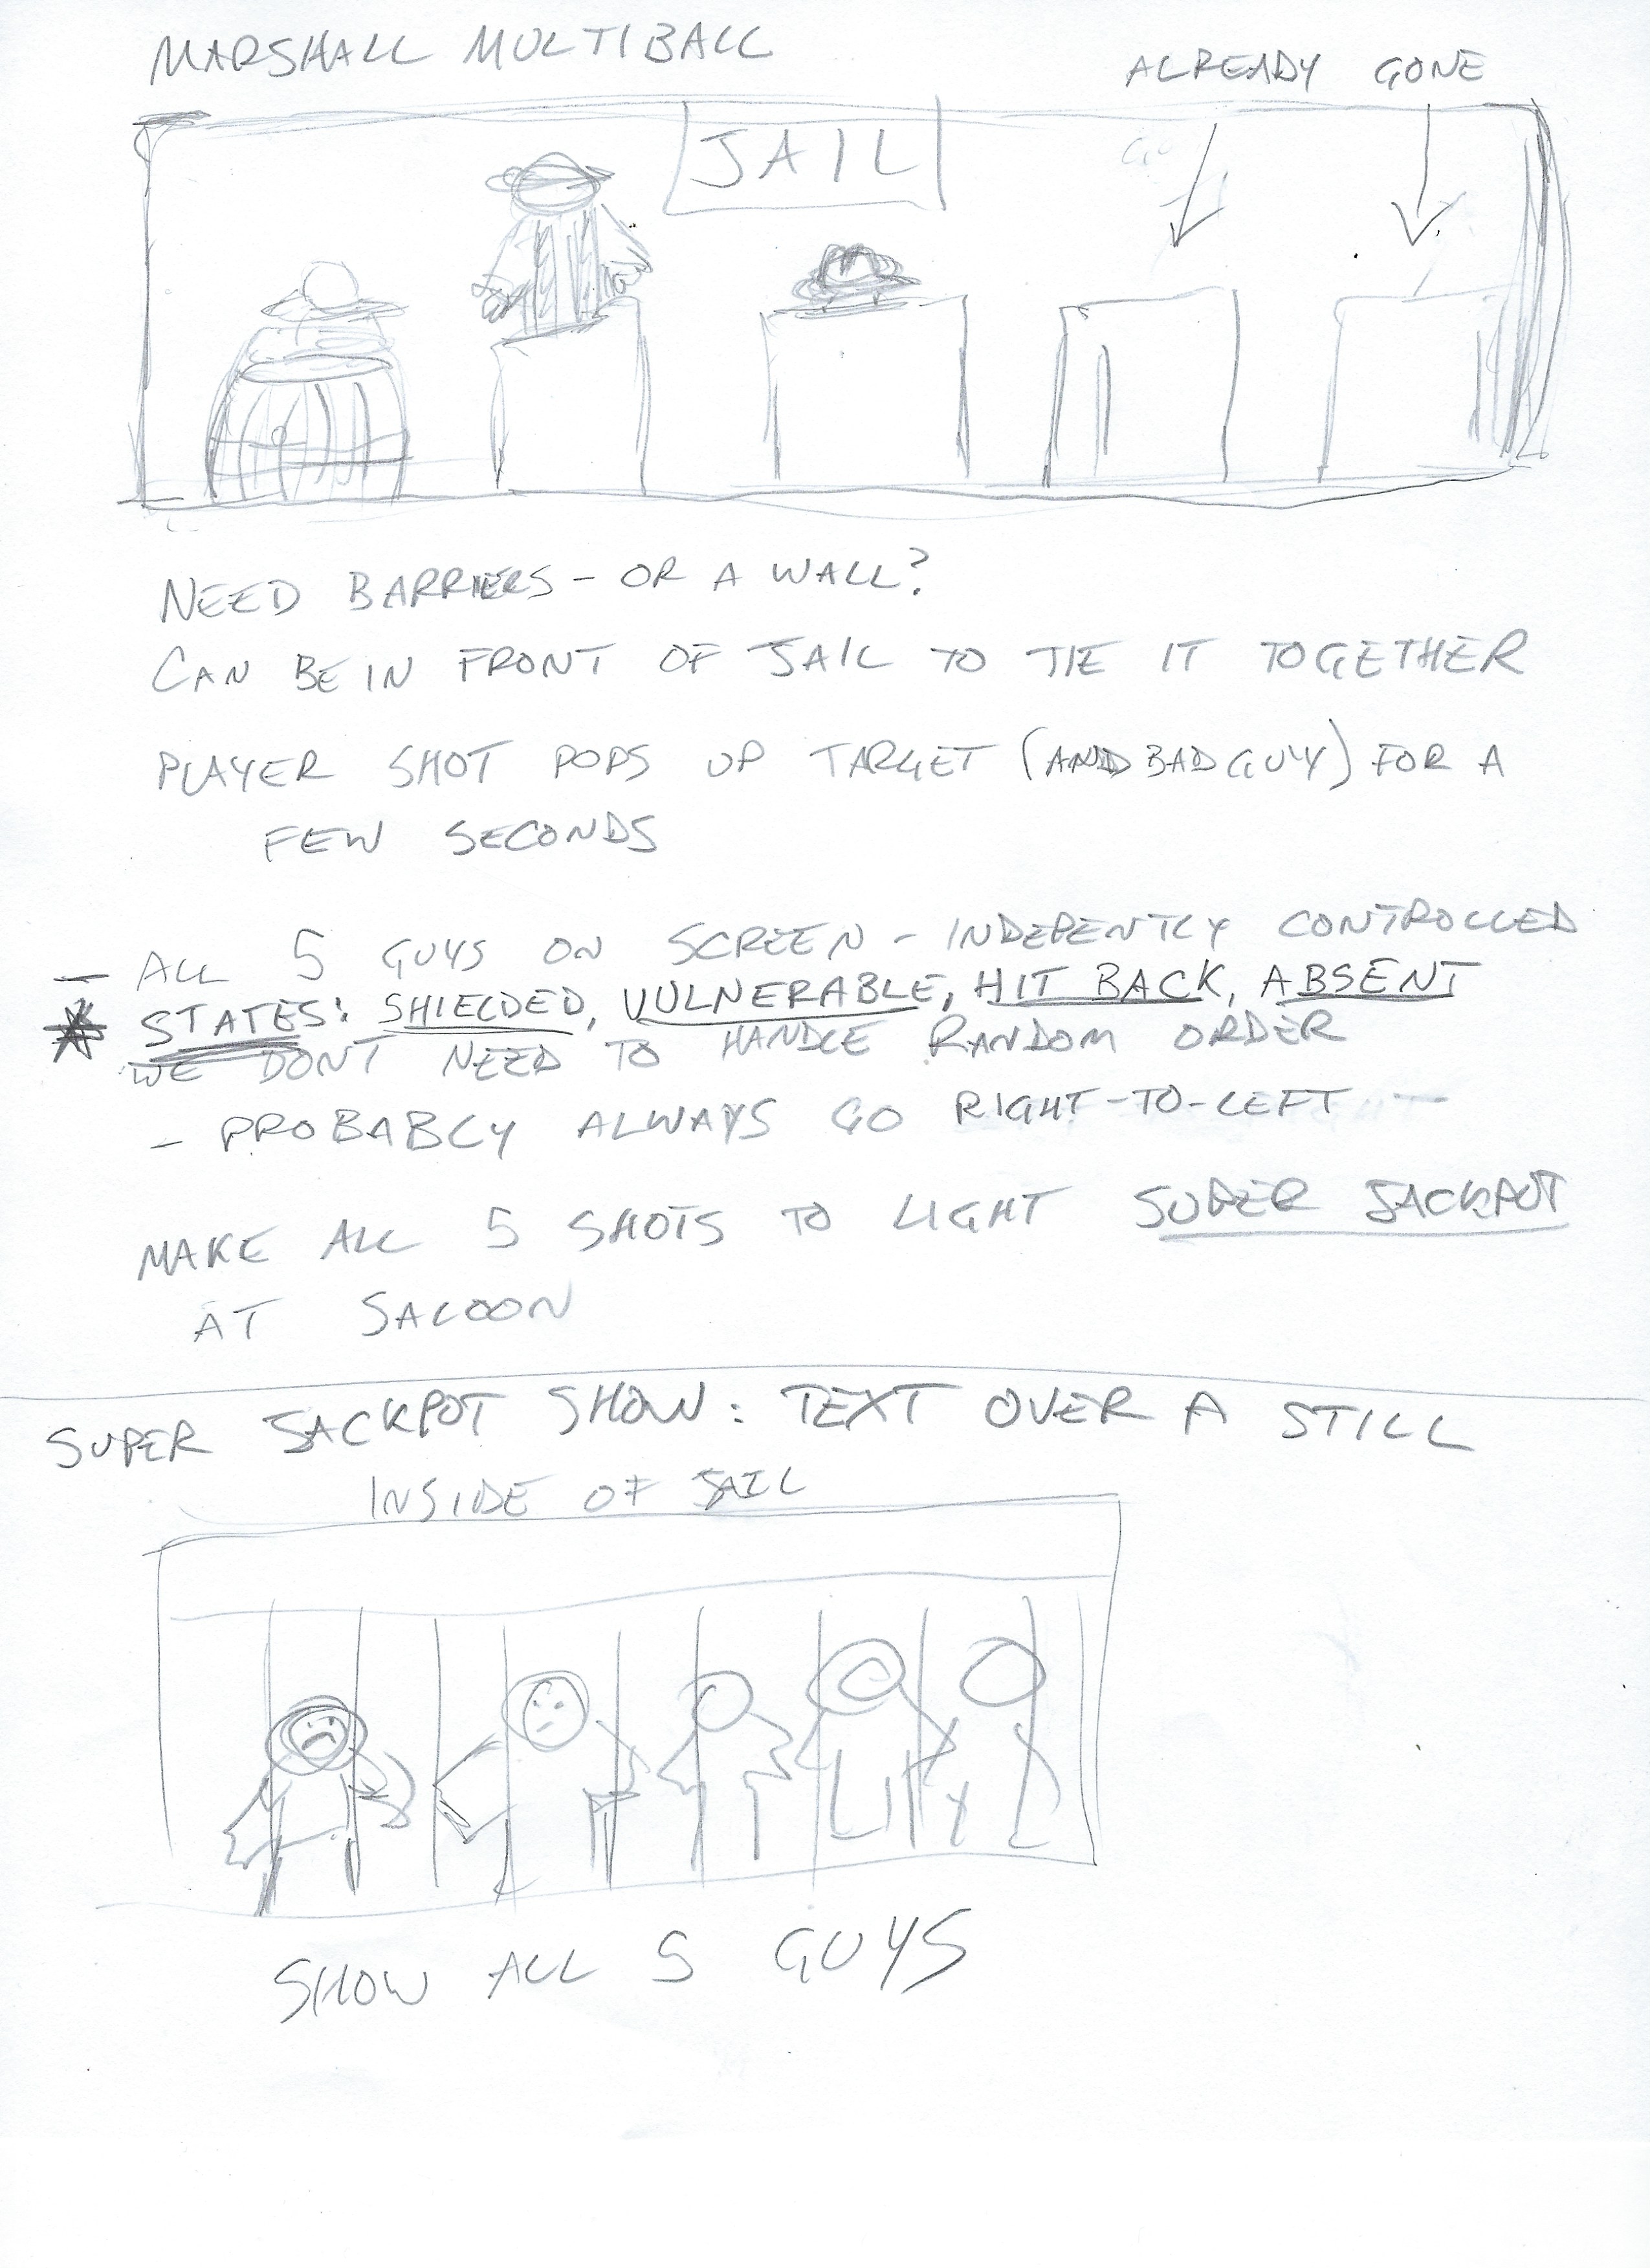 MARSHALL MULTIBALL
ALREADY GONE
JAIL
NEED BARRIERS - OR A WALL?
CAN BE IN FRONT OF JAIL TO TIE IT TOGETHER
PLAYER SHOT POPS UP TARGET (AND BAD GUY) FOR A
FEW SECONDS
- ALL 5 GUYS ON SCREEN - INDEPENTLY CONTROLLED
* STATES: SHIELDED, VULNERABLE, HIT BACK, ABSENT
WE DONT NEED TO HANDLE RANDOM ORDER
- PROBABLY ALWAYS GO RIGHT-TO-LEFT
MAKE ALL 5 SHOTS TO LIGHT SUPER JACKPOT
AT SALOON
SUPER JACKPOT SHOW: TEXT OVER A STILL
INSIDE OF JAIL
SHOW ALL 5 GUYS